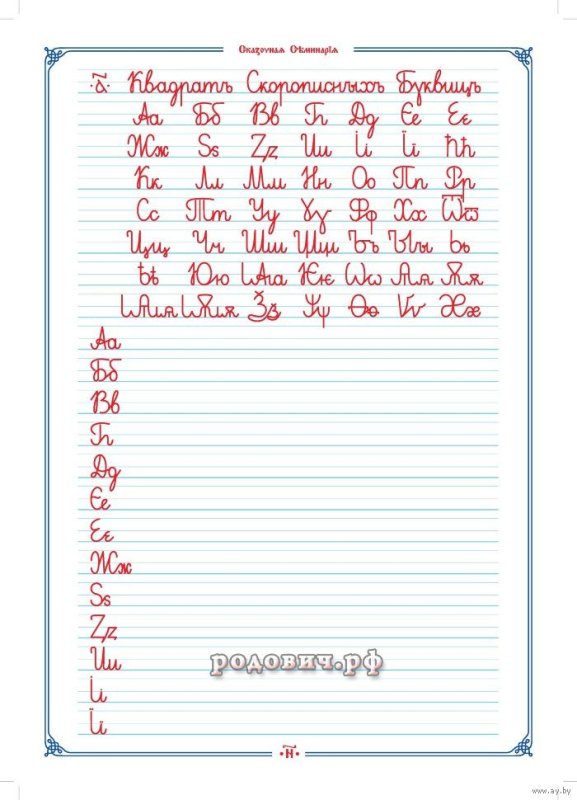 Сказочная Семинарія
·а҃· Квадратъ Скорописныхъ Буквицъ
Аа Бб Вв Гг Дд Єе Ее
Жж Ѕѕ Zz Ии І і Ї ї Ћћ
Кк Лл Мм Нн Оо Пп Рр
Сс Тт Уу Ȣ Фф Хх Ѿѿ
Цц Чч Шш Щщ Ъъ Ыы Ьь
Ѣѣ Юю Ꙗꙗ Ѥѥ Ѡѡ Ѧѧ Ѫѫ
Ѩѩ Ѭѭ Ѯѯ Ѱ Ѳѳ Ѵѵ Ӕӕ
Аа
Бб
Вв
Гг
Дд
Єе
Ее
Жж
Ѕѕ
Zz
Ии
І і
Ї ї
родович.рф
·Н҃·
www.ay.by